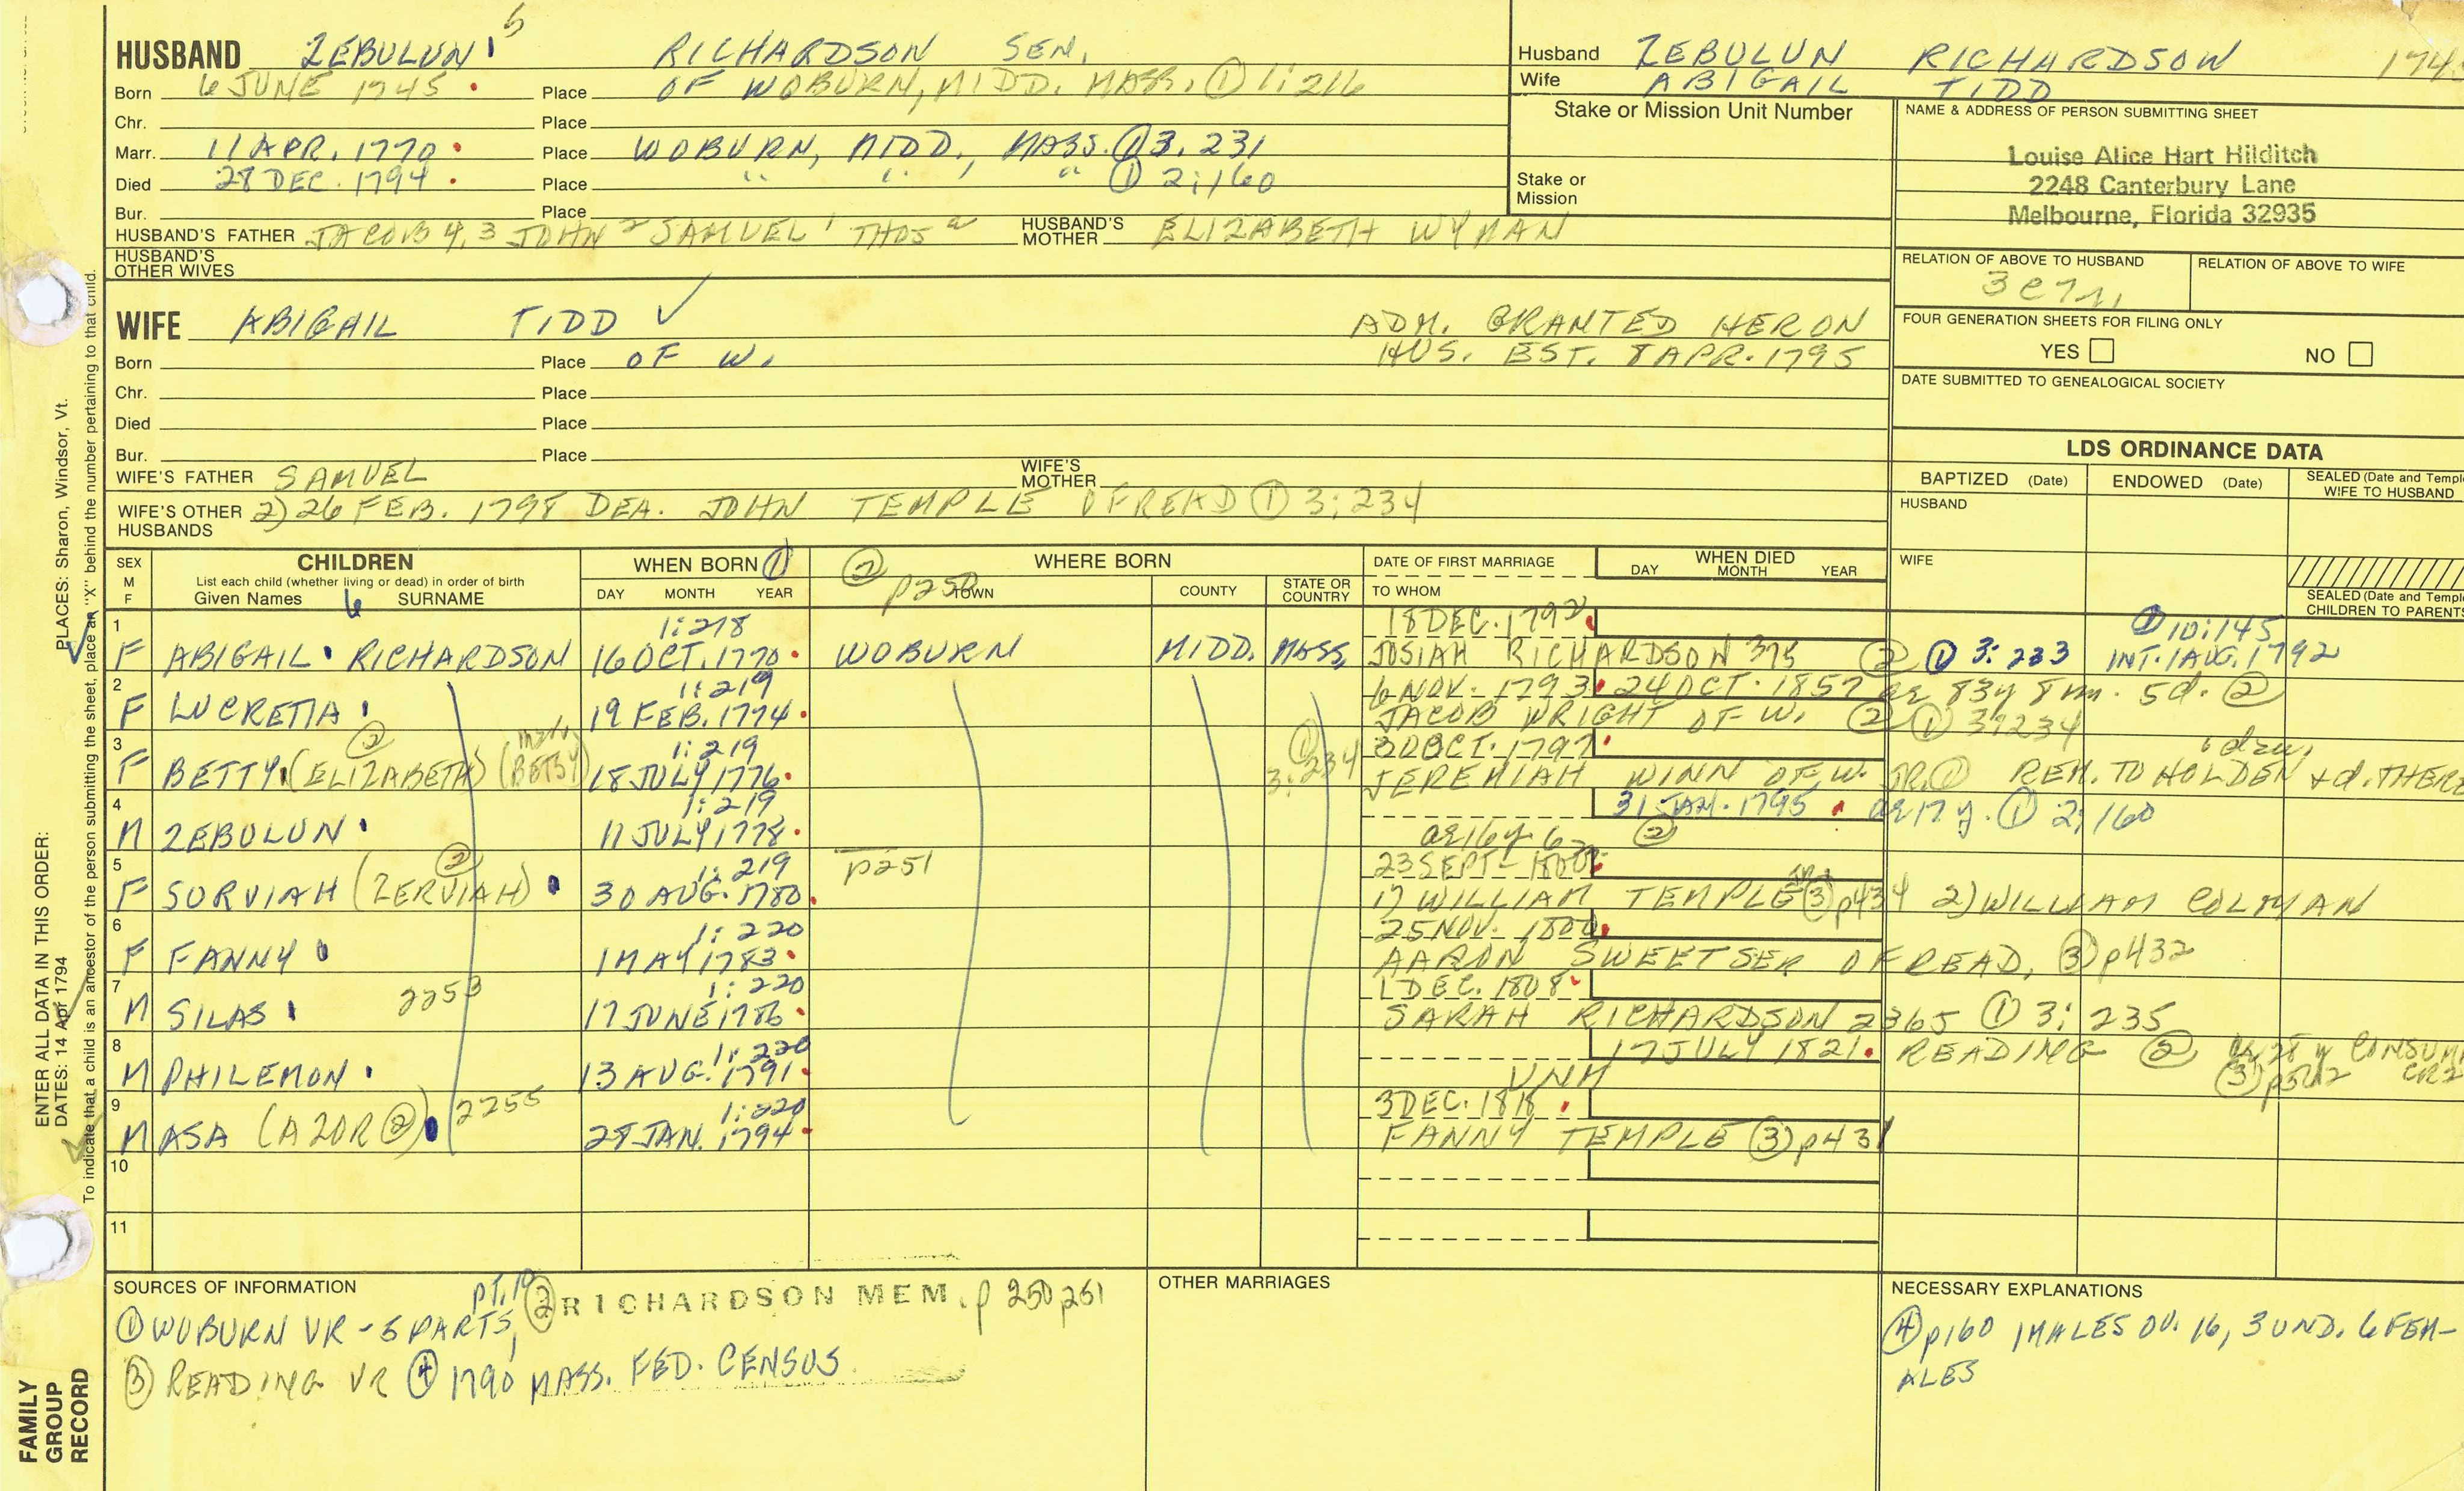 HUSBAND ZEBULUN 5 RICHARDSON SEN.
Born 6 JUNE 1745 Place OF WOBURN, MIDD. MASS. ① 1:216
Chr. Place
Marr. 11 APR. 1770 Place WOBURN, MIDD., MASS. ① 3. 231
Died 28 DEC. 1794 Place " " , " ① 2:160
Bur. Place
HUSBAND'S FATHER JACOB 4, 3 JOHN 2 SAMUEL 1 THOS a HUSBAND'S MOTHER ELIZABETH WYMAN
HUSBAND'S OTHER WIVES
Husband ZEBULUN RICHARDSON
Wife ABIGAIL TIDD
Stake or Mission Unit Number
Stake or Mission
NAME & ADDRESS OF PERSON SUBMITTING SHEET
Louise Alice Hart Hilditch
2248 Canterbury Lane
Melbourne, Florida 32935
RELATION OF ABOVE TO HUSBAND RELATION OF ABOVE TO WIFE
FOUR GENERATION SHEETS FOR FILING ONLY
YES NO
DATE SUBMITTED TO GENEALOGICAL SOCIETY
WIFE ABIGAIL TIDD ✓ ADM. GRANTED HER ON
Born Place OF W. HUS. EST. 8 APR. 1795
Chr. Place
Died Place
Bur. Place
WIFE'S FATHER SAMUEL WIFE'S MOTHER
WIFE'S OTHER HUSBANDS 2) 26 FEB. 1798 DEA. JOHN TEMPLE OF READ ① 3:234
LDS ORDINANCE DATA
BAPTIZED (Date) ENDOWED (Date) SEALED (Date and Templ
WIFE TO HUSBAND
HUSBAND
WIFE
SEALED (Date and Templ
CHILDREN TO PARENTS
SEX M F CHILDREN WHEN BORN ① ② p250 WHERE BORN DATE OF FIRST MARRIAGE WHEN DIED
List each child (whether living or dead) in order of birth DAY MONTH YEAR
Given Names 6 SURNAME DAY MONTH YEAR TOWN COUNTY STATE OR COUNTRY TO WHOM
1 1:218 18 DEC. 1792 ① 10:145
F ABIGAIL RICHARDSON 16 OCT. 1770 WOBURN MIDD. MASS. JOSIAH RICHARDSON 375 ② ① 3:233 INT. 1 AUG. 1792
2 1:219 6 NOV. 1793 24 OCT. 1857 ae 83y 8m. 5d. ②
F LUCRETIA 19 FEB. 1774 JACOB WRIGHT OF W. ② ① 3:234
3 ② 1:219 ① 3:234 30 OCT. 1797
F BETTY (ELIZABETH) (BETSY) 18 JULY 1776 JEREMIAH WINN OF W. JR. ① REM. TO HOLDEN + d. THERE
4 1:219 31 JAN. 1795 ae 17 y. ① 2:160
M ZEBULUN 11 JULY 1778 ae 16 y 6 ②
5 ② 1:219 p251 23 SEPT. 1800
F SURVIAH (ZERVIAH) 30 AUG. 1780 1) WILLIAM TEMPLE JR. ③ p434 2) WILLIAM COLMAN
6 1:220 25 NOV. 1800
F FANNY 1 MAY 1783 AARON SWEETSER OF READ, ③ p432
7 2253 1:220 1 DEC. 1808
M SILAS 17 JUNE 1786 SARAH RICHARDSON 2365 ① 3:235
8 1:220 17 JULY 1821 READING ② ae 28 y CONSUM
M PHILEMON 13 AUG. 1791 UNM ③ p562 CR2
9 2255 1:220 3 DEC. 1818
M ASA (AZOR ②) 28 JAN. 1794 FANNY TEMPLE ③ p431
10
11
SOURCES OF INFORMATION
① WOBURN VR - 5 PARTS, PT. 10 ② RICHARDSON MEM. p 250, 251
③ READING VR ④ 1790 MASS. FED. CENSUS
OTHER MARRIAGES
NECESSARY EXPLANATIONS
④ p160 1 MALES OV. 16, 3 UND. 6 FEM-
ALES
ENTER ALL DATA IN THIS ORDER:
DATES: 14 Apr 1794 PLACES: Sharon, Windsor, Vt.
To indicate that a child is an ancestor of the person submitting the sheet, place an "X" behind the number pertaining to that child.
FAMILY
GROUP
RECORD